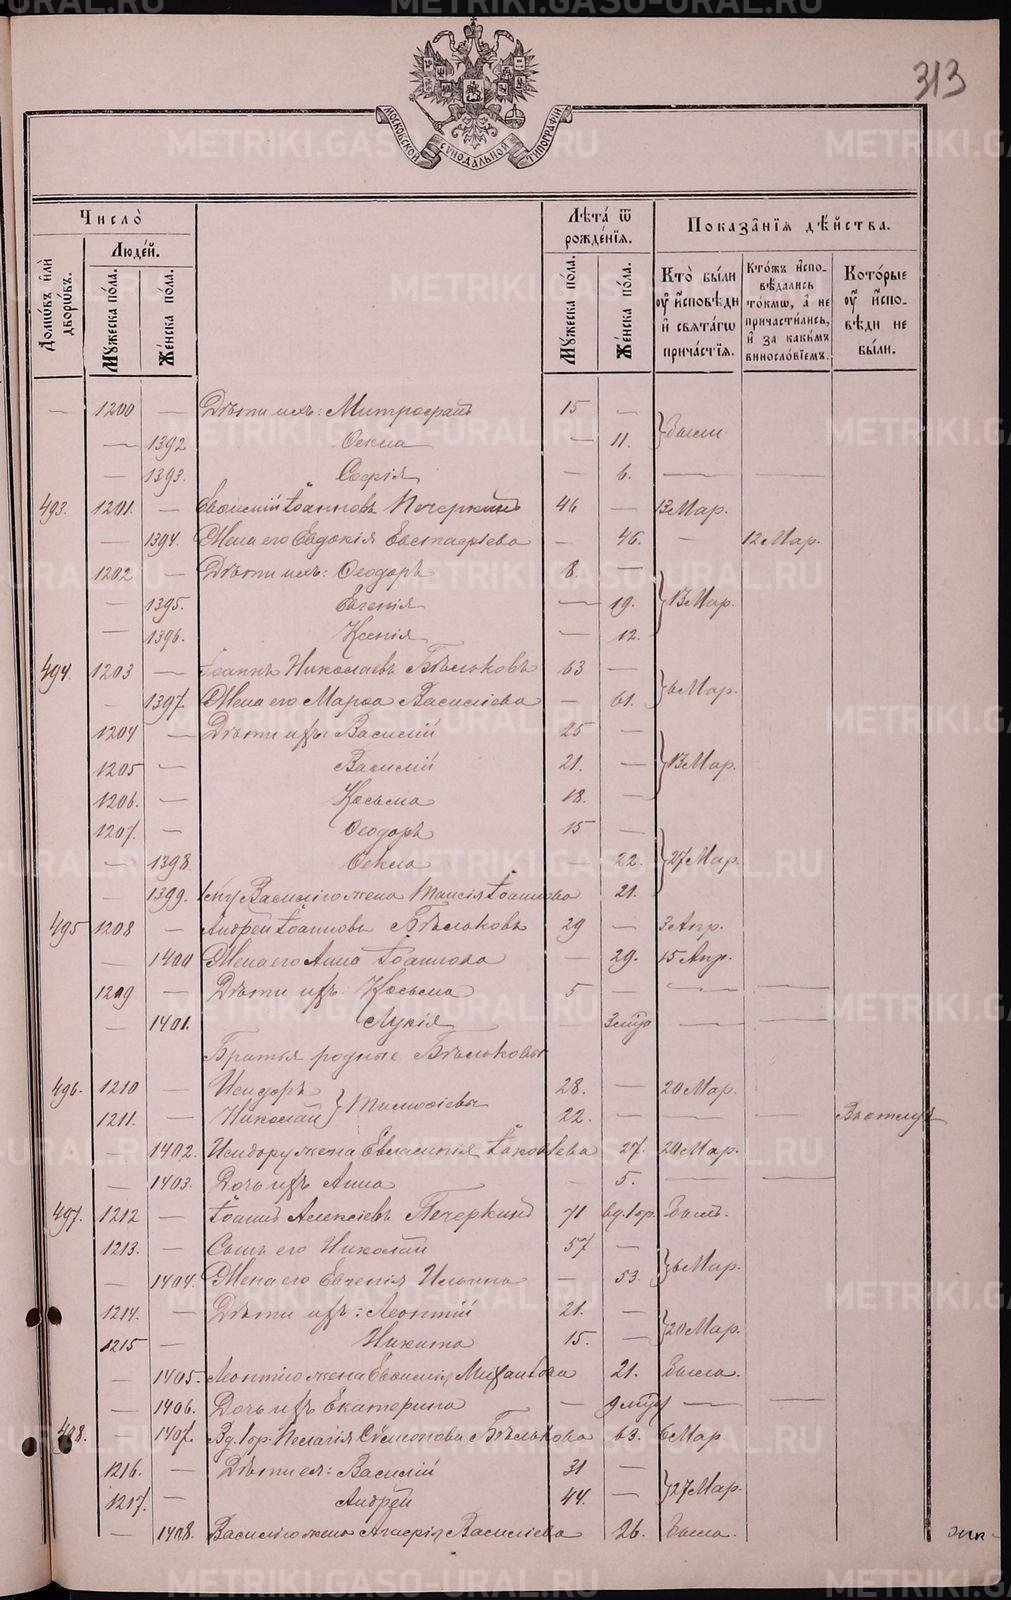 313
МОСКОВСКОЙ СѴНОДАЛЬНОЙ ТИПОГРАФІИ
Число̀
Домѡвъ и҆лѝ дворѡвъ.
Людей.
Мꙋжеска по́ла.
Же́нска по́ла.
Лѣ́та ѿ рожде́нїя.
Мꙋжеска по́ла.
Же́нска по́ла.
Показа̑нїя дѣ́йства.
Кто̀ бы́ли оу҆ и҆сповѣ́ди и҆ свѧта́гѡ прича́стїѧ.
Кто́жъ и҆спо-вѣ́дались то́кмѡ, а҆ не причасти́лись, и҆ за каки́мъ винослові́емъ.
Кото́рые оу҆ и҆спо-вѣ́ди не бы́ли.
— 1200 — Дѣти ихъ: Митрофанъ 15 —
— 1392 Ѳекла — 11. были
— 1393. Софія — 6. — —
493. 1201. — Іоанновъ Печеркинъ 46 — 13 Мар.
— 1394. Жена его Евдокія Евстафіева — 45. — 12 Мар.
1202 — Дѣти ихъ: Ѳеодоръ 8. —
— 1395. Евгенія — 19. 13 Мар.
— 1396. Ксенія — 12.
494. 1203 — Іоаннъ Николаевъ Бѣльковъ 63 —
— 1397. Жена его Марѳа Василіева — 61. 6 Мар.
1204 — Дѣти ихъ: Василій 25 —
1205 — Василій 21. — 13 Мар.
1206. — Косьма 18. —
1207. — Ѳеодоръ 15 —
— 1398. Ѳекла — 22. 27 Мар.
1399. Василія жена Таисія Іоаннова 21.
495 1208 — Андрей Іоанновъ Бѣльковъ 29 — 3 Апр.
— 1400 Жена его Анна Іоаннова — 29. 15 Апр.
1209 — Дѣти ихъ: Косьма 5 — — —
— 1401. Лукія — — —
Братья родные Бѣльковы
496. 1210 — Исидоръ 28. — 20 Мар.
1211. — Николай Тимоѳіевы 22. — — — Въ отлуч
— 1402. Исидору жена Евласинія Іаковлева 27. 20 Мар.
— 1403. Дочь ихъ Анна — 5. — —
497. 1212 — Іоаннъ Алексіевъ Печеркинъ 71 вд. 1 бр. былъ.
1213. — Сынъ его Николай 57 —
— 1404. Жена его Евгенія Ильина — 53. 6 Мар.
1214. — Дѣти ихъ: Леонтій 21. —
1215 — Никита 15. — 20 Мар.
— 1405. Леонтію жена Михаилова 21. была.
— 1406. Дочь ихъ Екатерина — 9 — —
498. — 1407. Вд. 1 бр. Пелагія Сѵмеонова Бѣлькова 63. 6 Мар.
1216. — Дѣти ея: Василій 31 —
1217. — Андрей 44. — 27 Мар.
— 1408. Василію жена Василіева 26. была.
METRIKI.GASO-URAL.RU